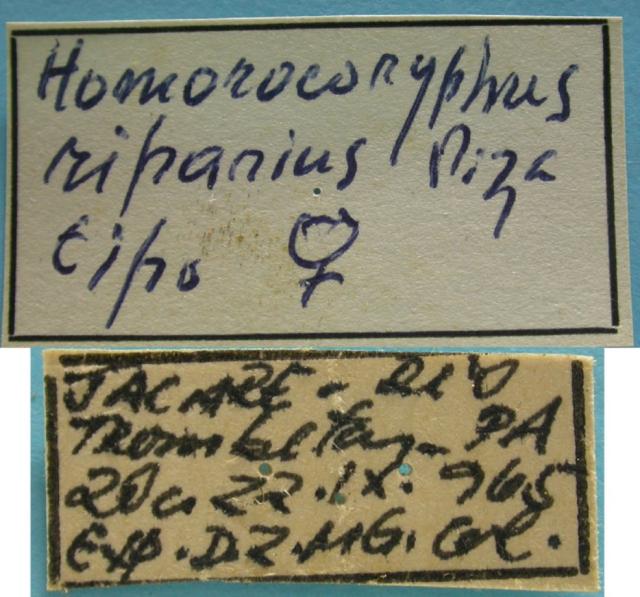 Homorocoryphus
riparius Piza
tipo ♀
JACARÉ - RIO
Trombetas - PA
20 a 22.IX.965
Exp. DZ.MG. Col.